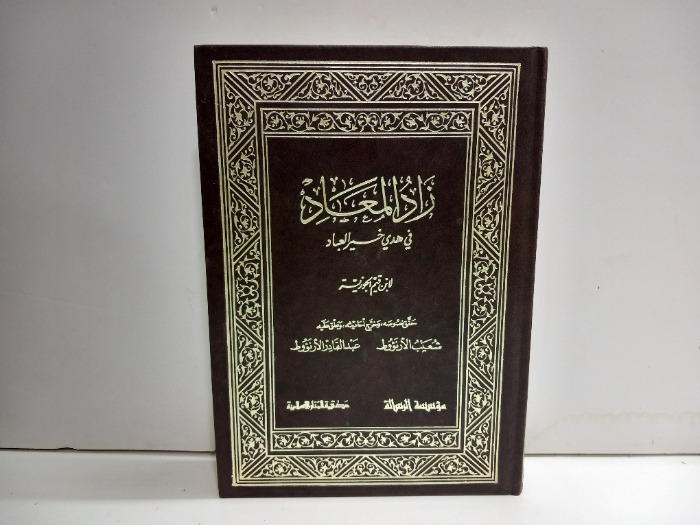 زَادُ المَعَاد
في هدي خير العباد
لابن قيم الجوزية
حقق نصوصه، وخرج أحاديثه، وعلق عليه
شعيب الأرنؤوط عبد القادر الأرنؤوط
مؤسسة الرسالة مكتبة المنار الإسلامية